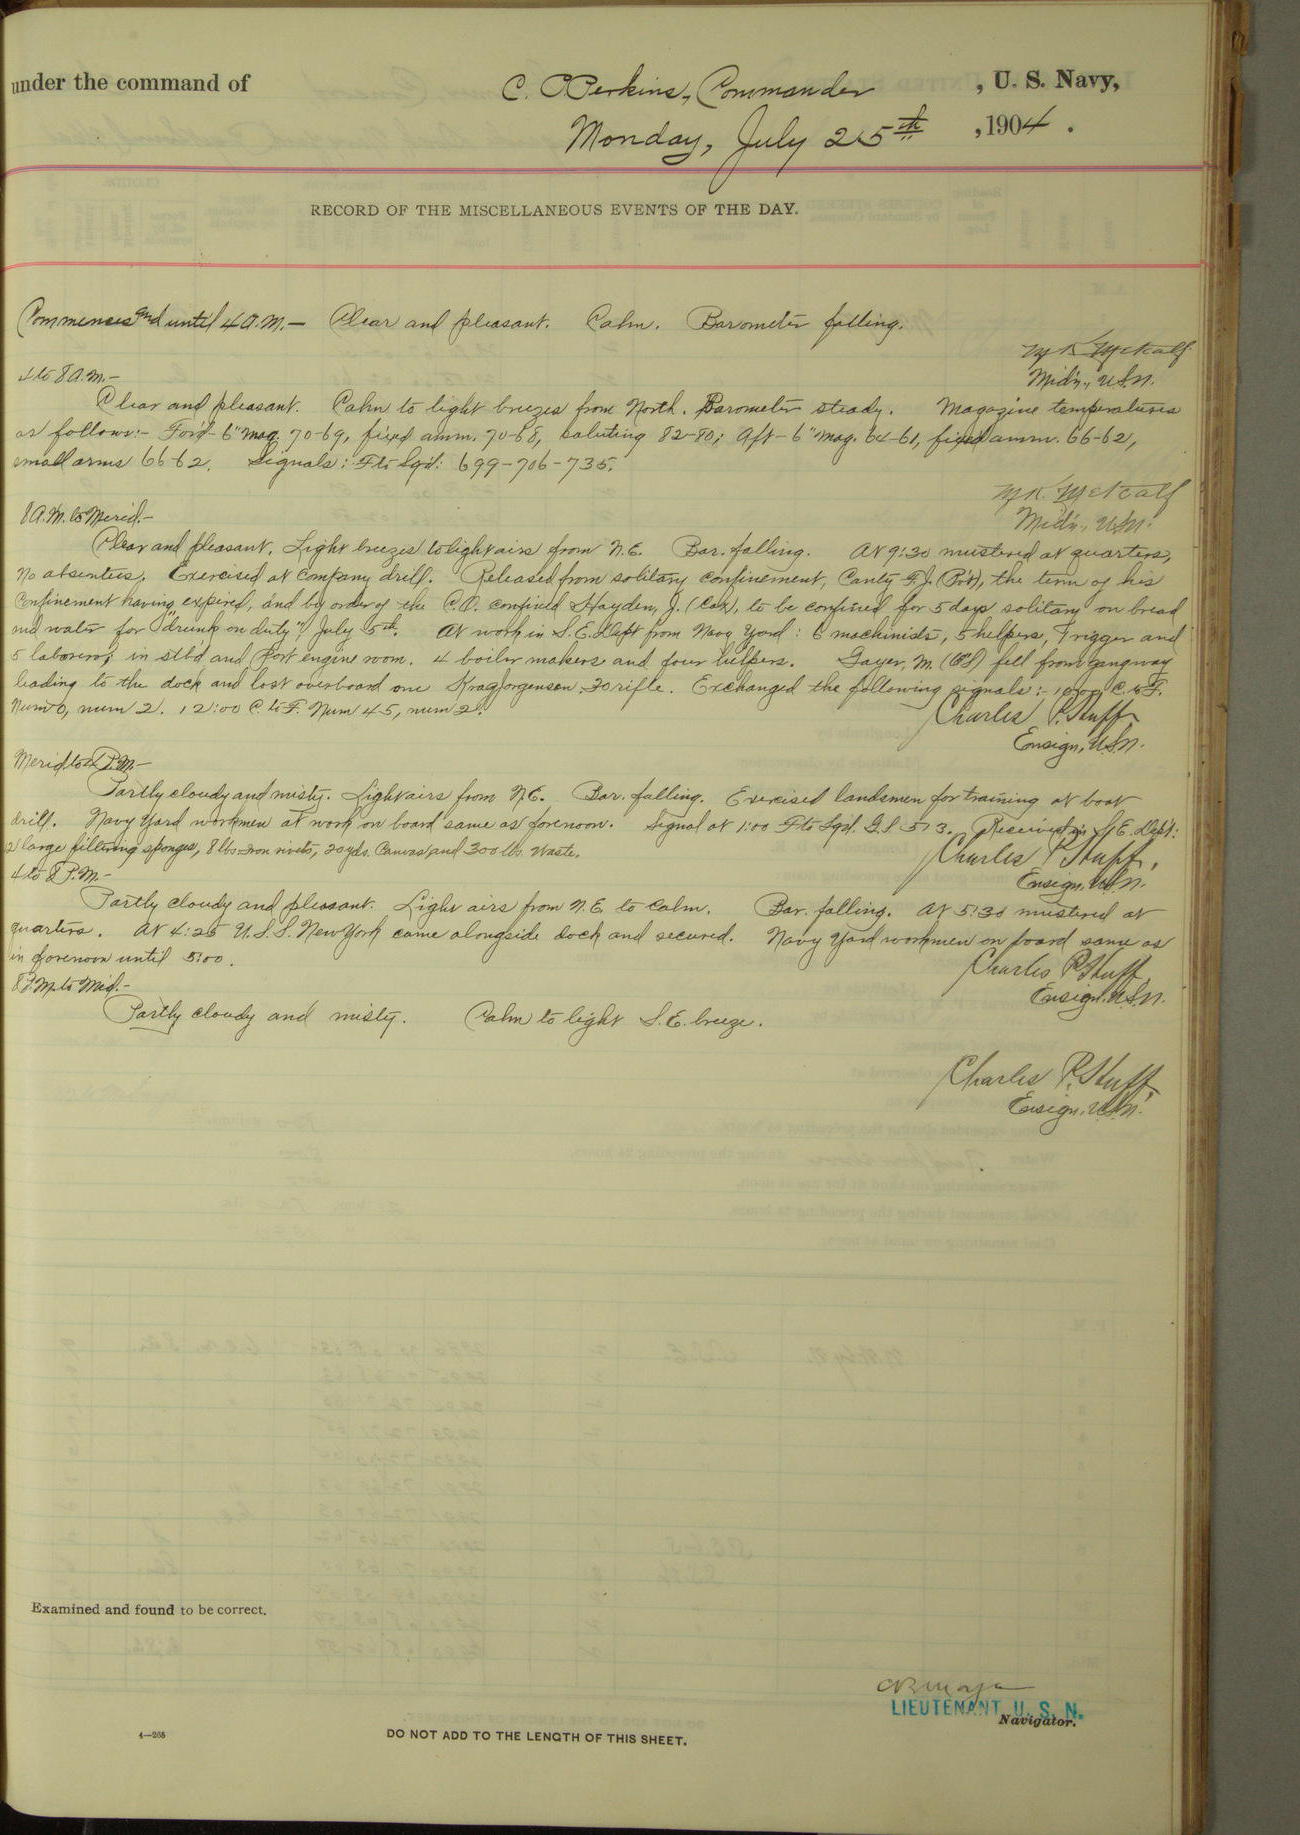 under the command of C. C. Perkins, Commander, U. S. Navy,
Monday, July 25th, 1904.
RECORD OF THE MISCELLANEOUS EVENTS OF THE DAY.
Commences and until 4 A.M.— Clear and pleasant. Calm. Barometer falling.
M K Metcalf
Mid'n., U.S.N.
4 to 8 A.M.—
Clear and pleasant. Calm to light breezes from North. Barometer steady. Magazine temperatures
as follows:- For'd- 6" mag. 70-69, fixed amm. 70-68, saluting 82-80; Aft- 6" mag. 64-61, fixed amm. 66-62,
small arms 66-62. Signals: F to Sqd: 699-706-735.
M K. Metcalf
Mid'n, U.S.N.
8 A.M. to Merid.—
Clear and pleasant. Light breezes to light airs from N.E. Bar. falling. At 9:30 mustered at quarters,
no absentees. Exercised at company drill. Released from solitary confinement, Canty F.J. (Pvt), the term of his
confinement having expired, and by order of the C.O. confined Hayden, J. (Cox), to be confined for 5 days solitary on bread
and water for "drunk on duty" July 5th. At work in S.E. Dept from Navy Yard: 6 machinists, 5 helpers, 1 rigger and
5 laborers in stbd and port engine room. 4 boiler makers and four helpers. Gayer, M. fell from gangway
leading to the dock and lost overboard one Krag Jorgensen .30 rifle. Exchanged the following signals:- 10:00, C. to F.
Num 0, num 2. 12:00 C. to F. Num 45, num 2.
Charles P. Huff
Ensign, U.S.N.
Merid to 4 P.M.—
Partly cloudy and misty. Light airs from N.E. Bar. falling. Exercised landsmen for training at boat
drill. Navy Yard workmen at work on board same as forenoon. Signal at 1:00 F to Sqd. G.S. 513. Received in S.E. Dept:
2 large filtering sponges, 8 lbs iron rivets, 20 yds. Canvas and 300 lbs. Waste.
Charles P. Huff,
Ensign, U.S.N.
4 to 8 P.M.—
Partly cloudy and pleasant. Light airs from N.E. to calm. Bar. falling. At 5:30 mustered at
quarters. At 4:25 U.S.S. New York came alongside dock and secured. Navy Yard workmen on board same as
in forenoon until 5:00.
Charles P. Huff,
Ensign, U.S.N.
8 P.M. to Mid.—
Partly cloudy and misty. Calm to light S.E. breeze.
Charles P. Huff,
Ensign, U.S.N.
Examined and found to be correct.
LIEUTENANT, U. S. N.
Navigator.
4—265
DO NOT ADD TO THE LENGTH OF THIS SHEET.